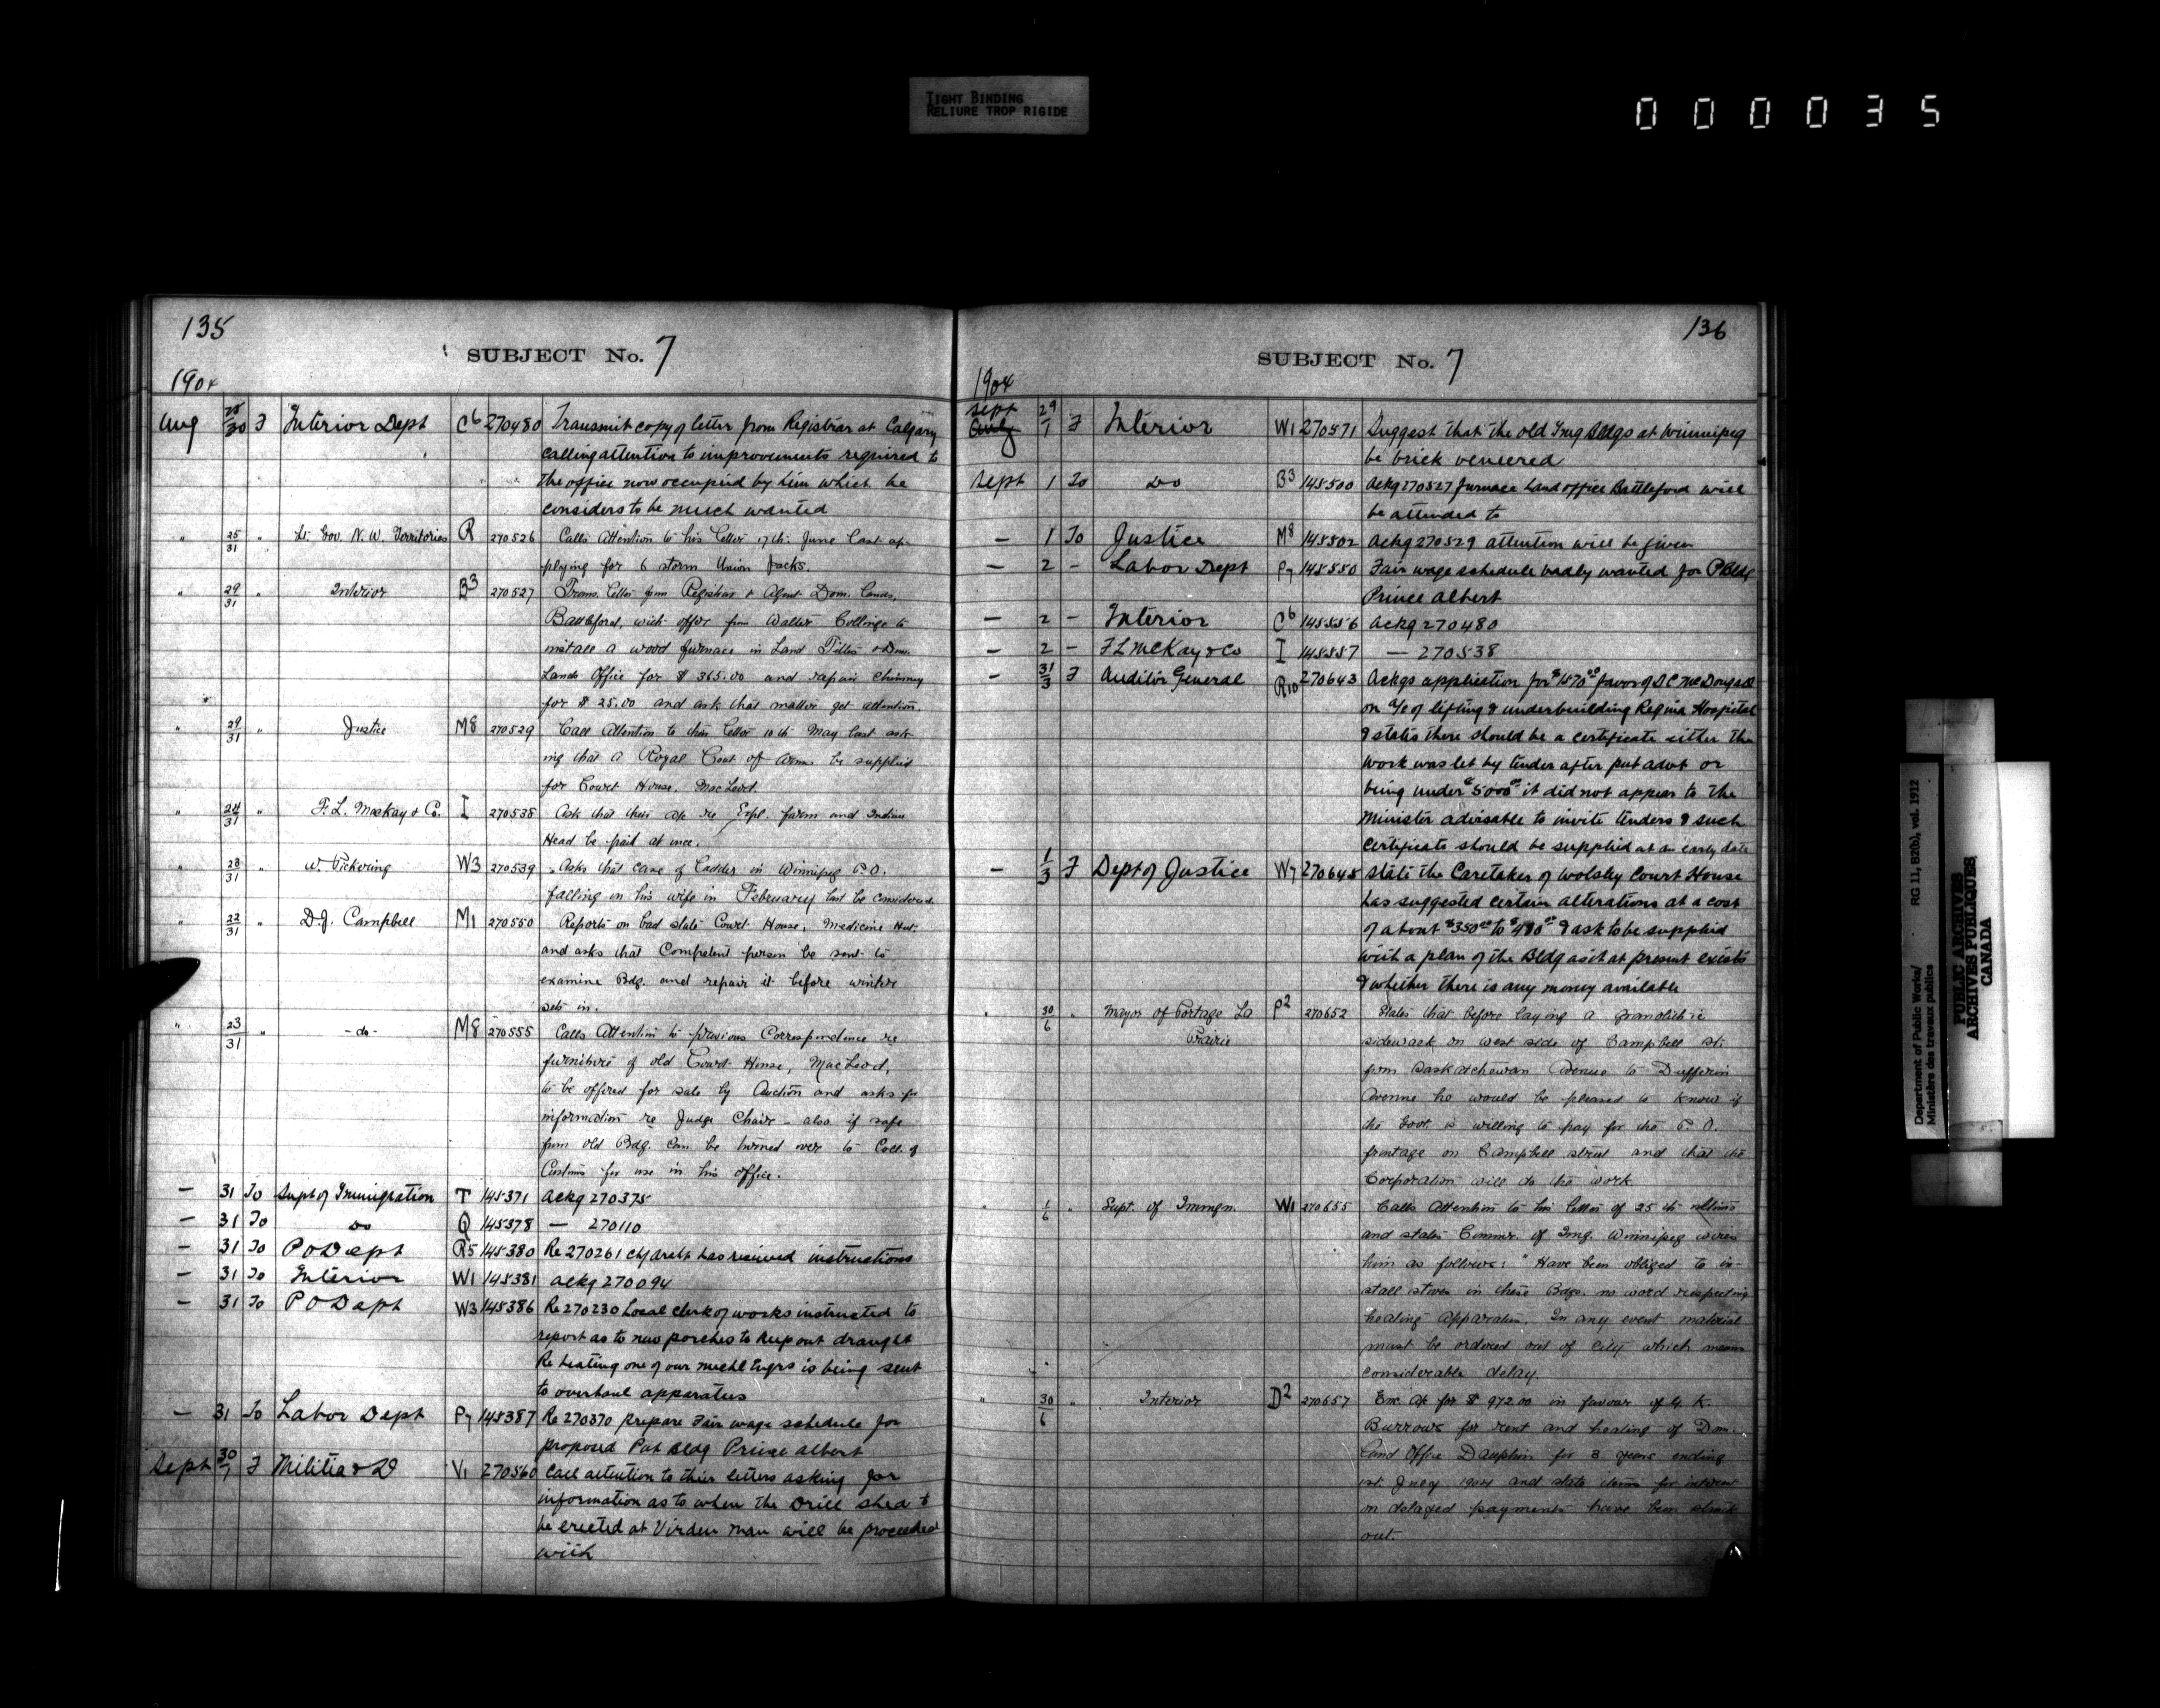 TIGHT BINDING
RELIURE TROP RIGIDE
000035
135
SUBJECT No. 7
1904
Aug 28/30 F Interior Dept C6 270480 Transmit copy of letter from Registrar at Calgary
calling attention to improvements required to
the office now occupied by him which he
considers to be much wanted
" 25/31 " Lt. Gov. N. W. Territories R 270526 Calls Attention to his letter 17th June last ap-
plying for 6 storm Union Jacks.
" 29/31 " Interior B3 270527 Trans. letter from Registrar & Agent Dom. Lands,
Battleford, with offer from Walter Collinge to
install a wood furnace in Land Titles & Dom.
Lands Office for $ 365.00 and repair chimney
for $ 25.00 and ask that matter get attention.
" 29/31 " Justice M8 270529 Call Attention to their letter 10th May last ask-
ing that a Royal Coat of Arms be supplied
for Court House, MacLeod.
" 24/31 " F. L. McKay & Co. I 270538 Ask that their a/c re Expl. farm and Indian
Head be paid at once.
" 28/31 " W. Pickering W3 270539 Asks that case of ladder in Winnipeg P.O.
falling on his wife in February last be considered.
" 22/31 " D.J. Campbell M1 270550 Reports on bad state Court House, Medicine Hat
and asks that Competent person be sent to
examine Bdg. and repair it before winter
sets in.
" 23/31 " -do- M8 270555 Calls Attention to previous Correspondence re
furniture of old Court House, MacLeod,
to be offered for sale by Auction and asks for
information re Judge Chair - also if safe
from old Bdg. can be turned over to Coll. of
Customs for use in his office.
— 31 To Supt of Immigration T 145371 Ackg 270375
— 31 To Do Q 145378 — 270110
— 31 To P O Dept R5 145380 Re 270261 has received instructions
— 31 To Interior W1 145381 Ackg 270094
— 31 To P O Dept W3 145386 Re 270230 Local clerk of works instructed to
report as to new porches to keep out draught
Re heating one of our mechl Engrs is being sent
to overhaul apparatus
— 31 To Labor Dept P7 145387 Re 270370 prepare Fair wage schedule for
proposed Pub Bldg Prince Albert
Sept 30/1 F Militia & D V1 270560 Call attention to their letters asking for
information as to when the Drill shed to
be erected at Virden Man will be proceeded
with
136
SUBJECT No. 7
1904
Sept Aug 29/1 F Interior W1 270571 Suggest that the old Img Bldgs at Winnipeg
be brick veneered
Sept 1 To Do B3 145500 Ackg 270527 furnace Land office Battleford will
be attended to
— 1 To Justice M8 145502 Ackg 270529 attention will be given
— 2 - Labor Dept P7 145550 Fair wage schedule badly wanted for P Bldg
Prince Albert
— 2 - Interior C6 145556 Ackg 270480
— 2 - F L McKay & Co I 145557 — 270538
— 31/3 F Auditor General R10 270643 Ackgs application for $1570 00 favor of D C McDougall
on a/c of lifting & underbuilding Regina Hospital
& states there should be a certificate either the
work was let by tender after pub advt or
being under $5000 00 it did not appear to the
Minister advisable to invite tenders & such
certificate should be supplied at an early date
— 1/3 F Dept of Justice W7 270645 State the Caretaker of Wolsley Court House
has suggested certain alterations at a cost
of about $350 00 to $400 00 & ask to be supplied
with a plan of the Bldg as it at present exists
& whether there is any money available
" 30/6 " Mayor of Portage La P2 270652 States that before laying a granolithic
Prairie
sidewalk on west side of Campbell St.
from Saskatchewan Avenue to Dufferin
Avenue he would be pleased to know if
the Govt. is willing to pay for the P. O.
frontage on Campbell street and that the
Corporation will do the work
" 1/6 " Supt. of Immgn. W1 270655 Calls Attention to his letter of 25th ultimo
and states Commr. of Img. Winnipeg wires
him as follows: "Have been obliged to in-
stall stoves in these Bdgs. no word respecting
heating apparatus. In any event material
must be ordered out of City which means
considerable delay
" 30/6 " Interior D2 270657 Enc. a/c for $ 972.00 in favour of K.
Burrows for rent and heating of Dom.
Land Office Dauphin for 3 years ending
1st. July 1904 and state items for interest
on delayed payments have been struck
out.
Department of Public Works/ RG 11, B2(b), vol. 1912
Ministère des travaux publics
PUBLIC ARCHIVES
ARCHIVES PUBLIQUES
CANADA